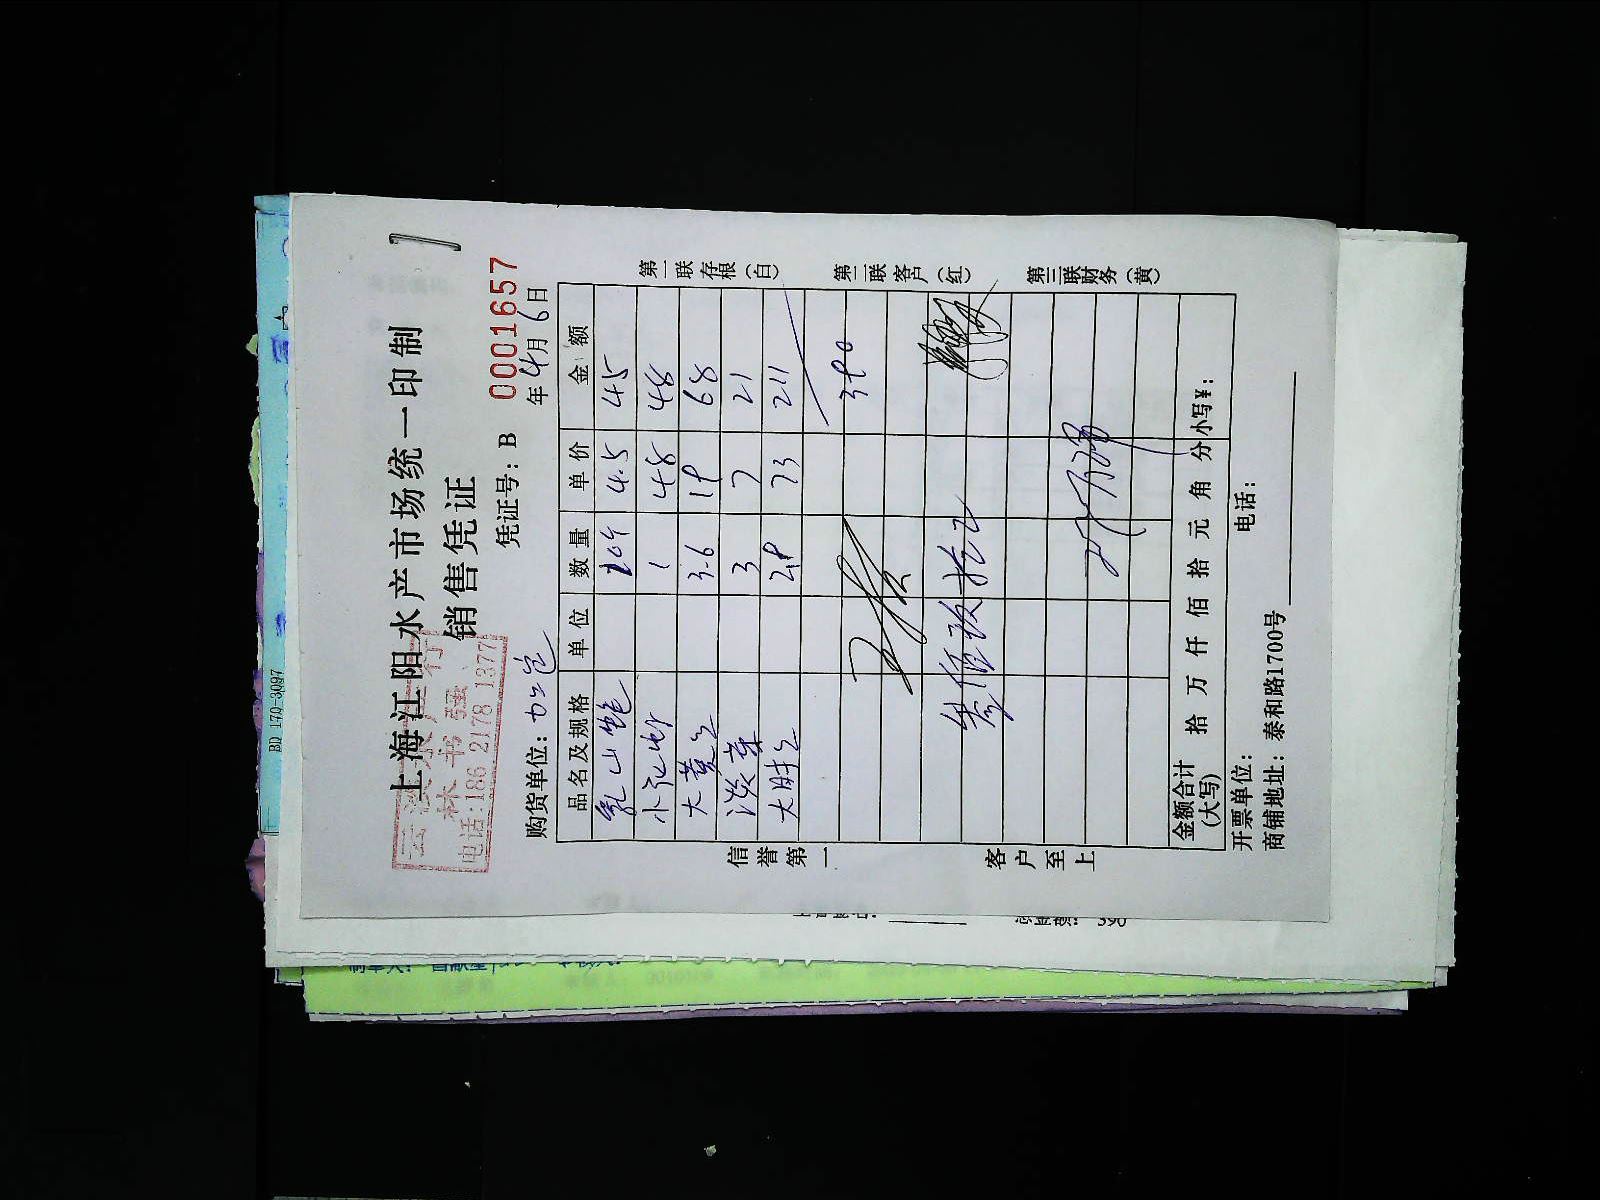 上海江阳水产市场统一印制
销售凭证
林书强
电话:186 2178 1377
凭证号：B 0001657
购货单位：
年4月6日
品名及规格 单位 数量 单价 金额
乳山鲍 10个 4.5 45
1 48 48
大黄鱼 3.6 19 68
淡菜 3 7 21
2.8 73 211
390
叁佰玖拾
金额合计(大写) 拾 万 仟 佰 拾 元 角 分 小写¥：
开票单位： 电话：
商铺地址：泰和路1700号
信誉第一 客户至上
第一联存根（白）
第二联客户（红）
第三联财务（黄）
BD 170-3097
总金额： 390